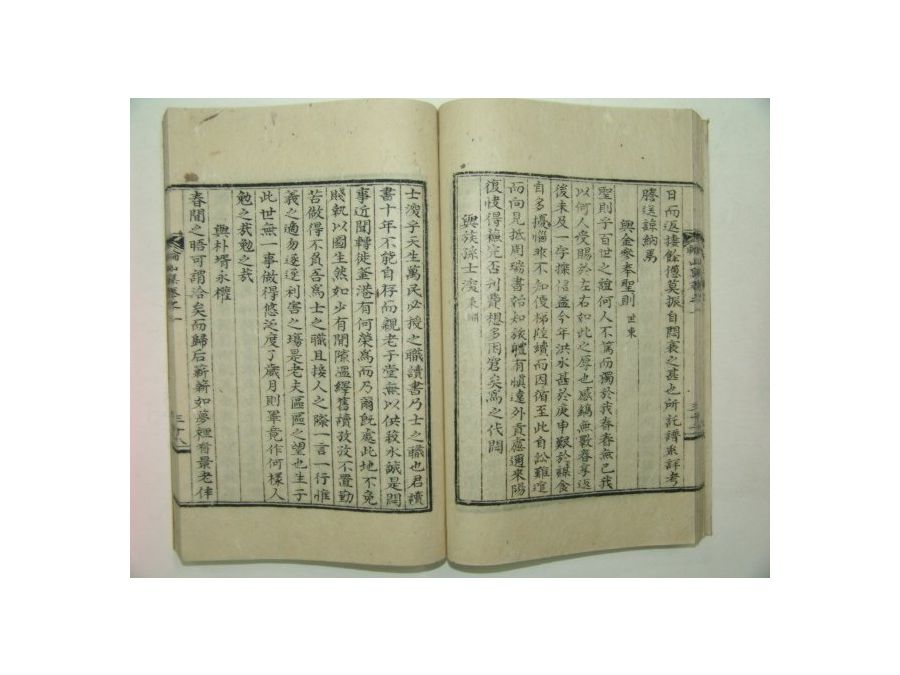 日而返捿餘憊莫振自悶衰之甚也所託譜系詳考
謄送諒納焉
與金參奉聖則 世東
聖則乎百世之誼何人不篤而獨於我眷眷無已我
以何人受賜於左右如此之厚也感鎸無斁春享返
後未及一字探信益今年洪水甚於庚申艱於糊食
自多擾惱非不知俊梯陞續而因循至此自訟難逭
而向見抵周瑞書始知旅體有愼遠外貢慮邇來陽
復快得蘇完否刋費想多困窘矣爲之代悶
與族孫士浚
士浚乎天生萬民必授之職讀書乃士之職也君讀
書十年不能自存而親老子堂無以供菽水誠是悶
事近聞轉徙釜港有何榮爲而乃爾旣處此地不免
賤執以圖生然如少有閒隙溫繹舊讀孜孜不置勤
苦做得不負吾爲士之職且接人之際一言一行惟
義之適勿遂逐利害之場是老夫區區之望也生子
此世無一事做得悠泛度了歲月則畢竟作何樣人
勉之哉勉之哉
與朴壻永權
春間之晤可謂洽矣而歸后蘄蘄如夢裡看景老倅